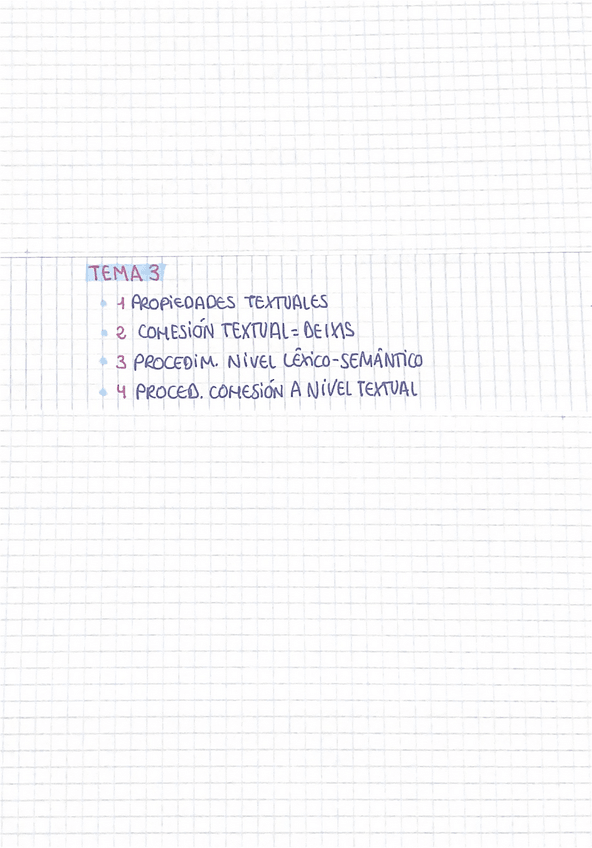 TEMA 3
1 PROPIEDADES TEXTUALES
2 COHESIÓN TEXTUAL = DEIXIS
3 PROCEDIM. NIVEL LÉXICO-SEMÁNTICO
4 PROCED. COHESIÓN A NIVEL TEXTUAL